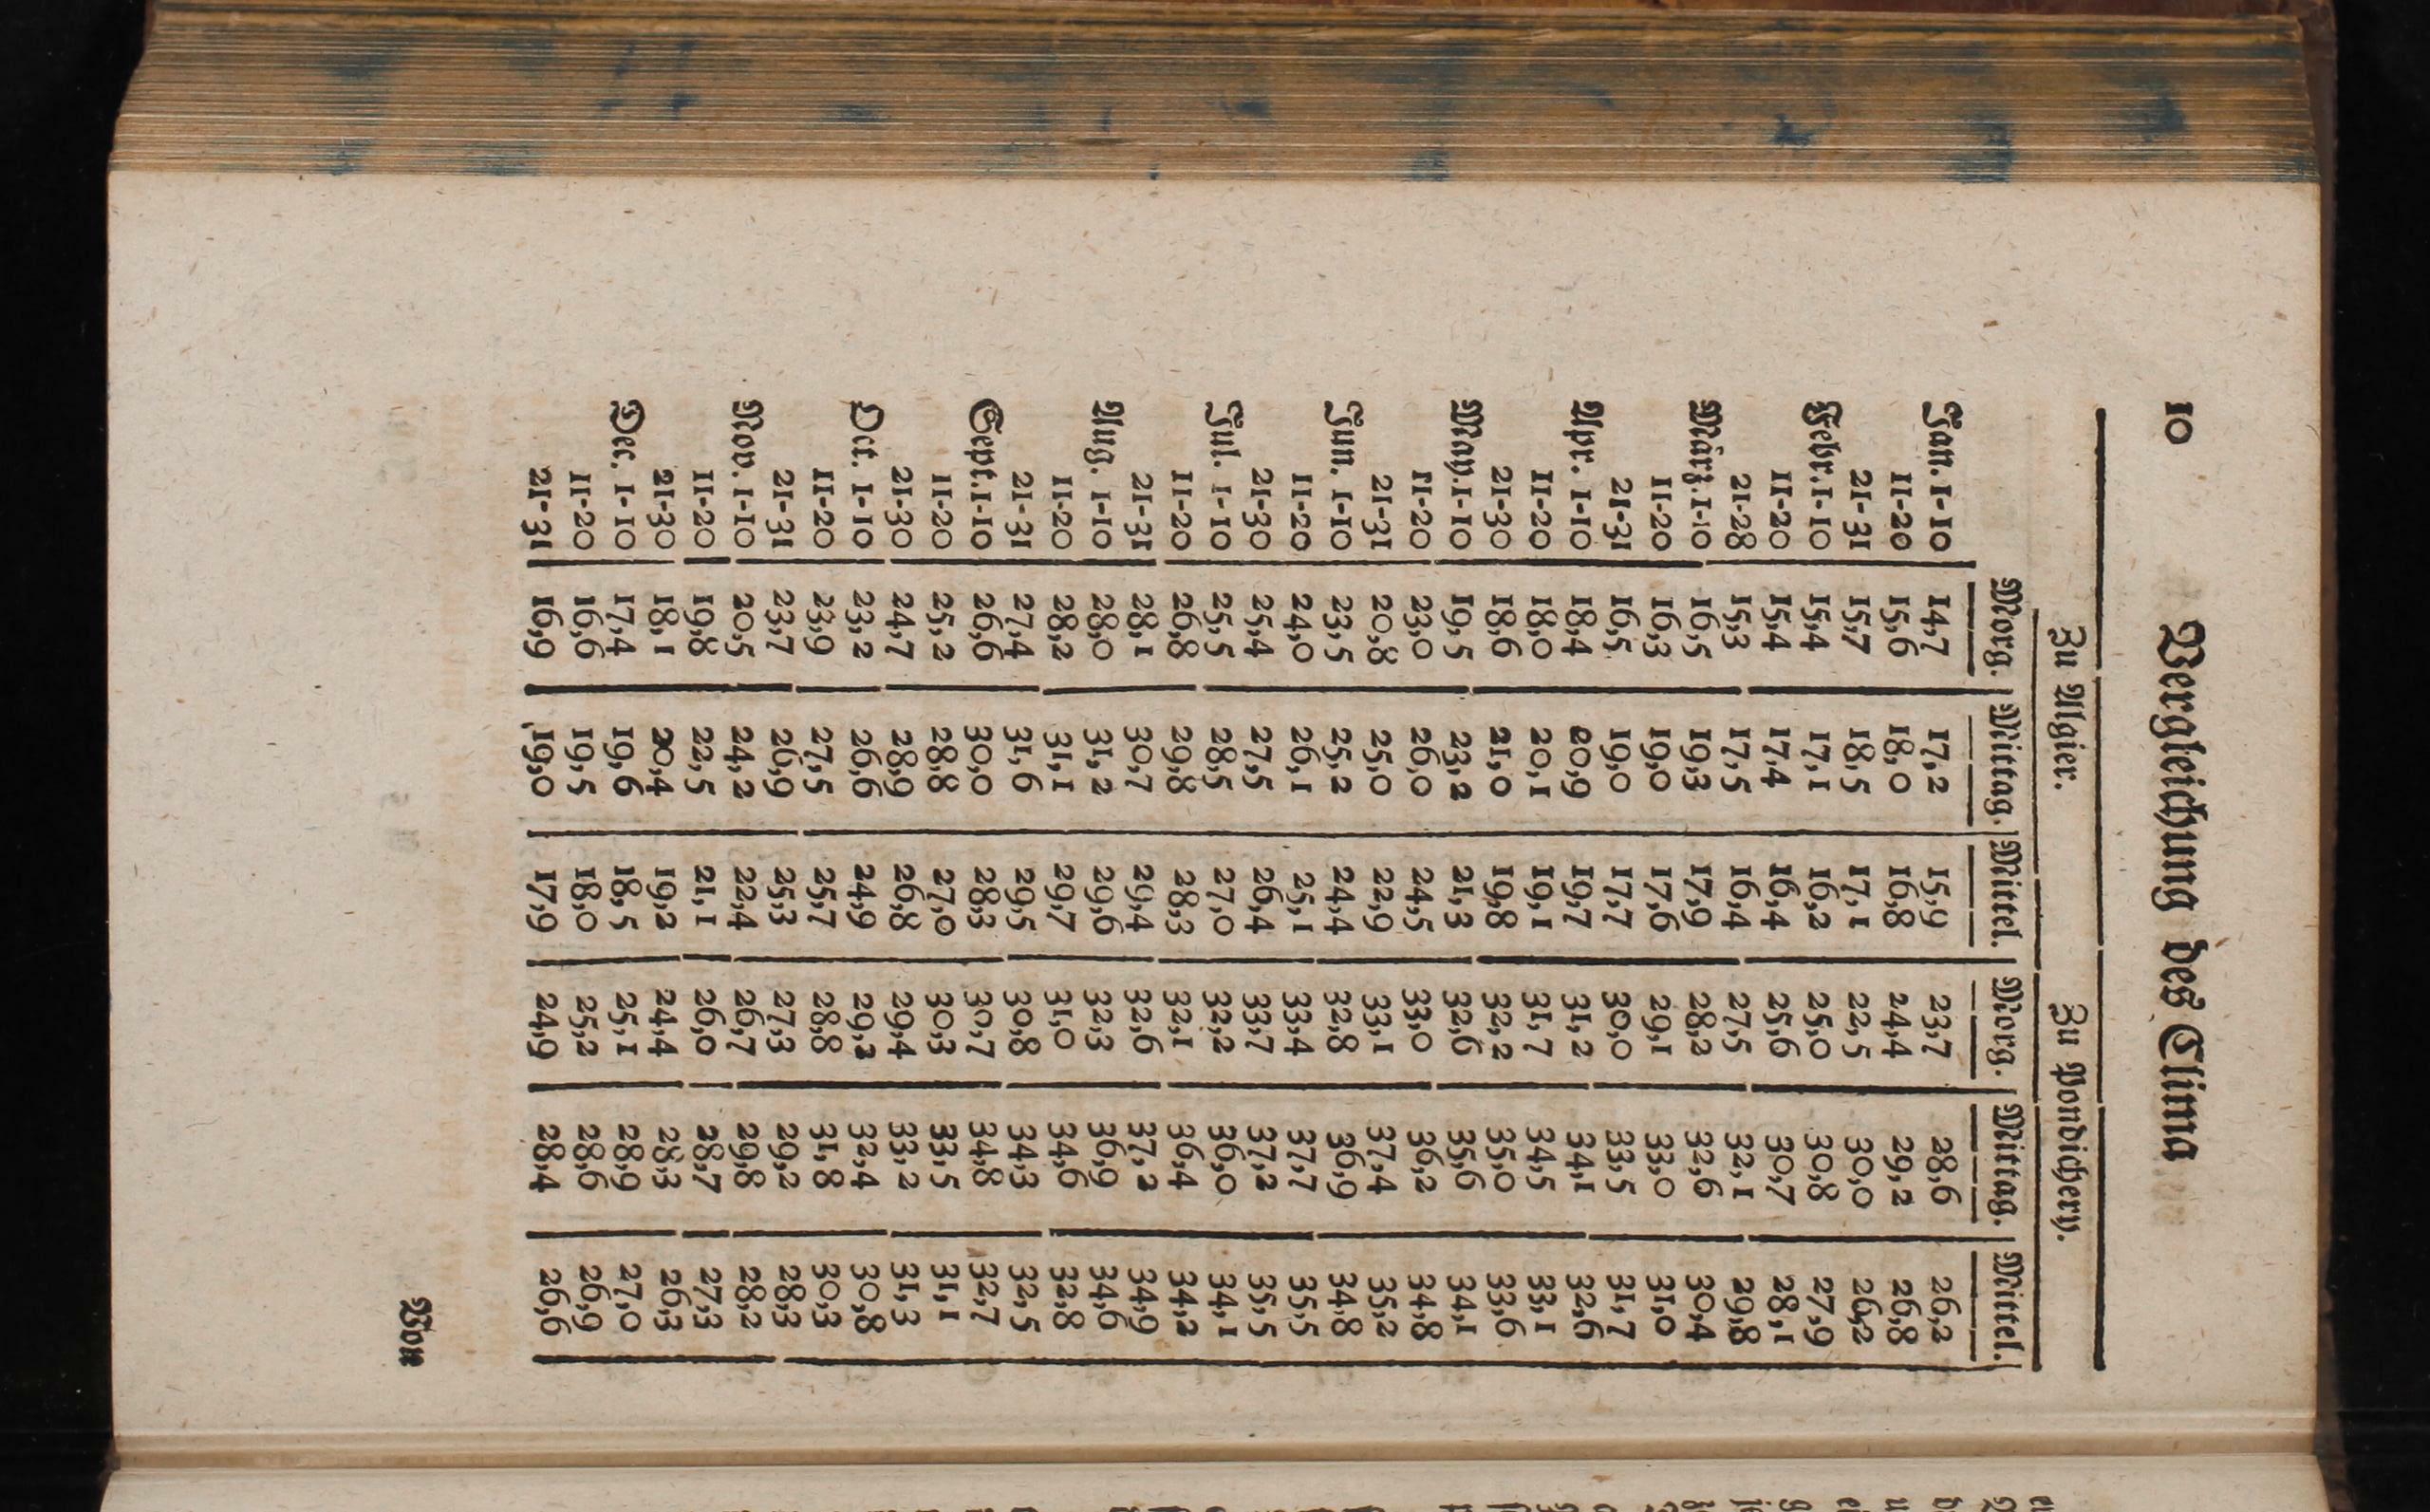 10 Vergleichung des Clima
Zu Algier. Zu Pondichery.
Morg. Mittag. Mittel. Morg. Mittag. Mittel.
Jan. 1-10 14,7 17,2 15,9 23,7 28,6 26,2
11-20 15,6 18,0 16,8 24,4 29,2 26,8
21-31 15,7 18,5 17,1 22,5 30,0 26,2
Febr. 1-10 15,4 17,1 16,2 25,0 30,8 27,9
11-20 15,4 17,4 16,4 25,6 30,7 28,1
21-28 15,3 17,5 16,4 27,5 32,1 29,8
März. 1-10 16,5 19,3 17,9 28,2 32,6 30,4
11-20 16,3 19,0 17,6 29,1 33,0 31,0
21-31 16,5 19,0 17,7 30,0 33,5 31,7
Apr. 1-10 18,4 20,9 19,7 31,2 34,1 32,6
11-20 18,0 20,1 19,1 31,7 34,5 33,1
21-30 18,6 21,0 19,8 32,2 35,0 33,6
May. 1-10 19,5 23,2 21,3 32,6 35,6 34,1
11-20 23,0 26,0 24,5 33,0 36,2 34,8
21-31 20,8 25,0 22,9 33,1 37,4 35,2
Jun. 1-10 23,5 25,2 24,4 32,8 36,9 34,8
11-20 24,0 26,1 25,1 33,4 37,7 35,5
21-30 25,4 27,5 26,4 33,7 37,2 35,5
Jul. 1-10 25,5 28,5 27,0 32,2 36,0 34,1
11-20 26,8 29,8 28,3 32,1 36,4 34,2
21-31 28,1 30,7 29,4 32,6 37,2 34,9
Aug. 1-10 28,0 31,2 29,6 32,3 36,9 34,6
11-20 28,2 31,1 29,7 31,0 34,6 32,8
21-31 27,4 31,6 29,5 30,8 34,3 32,5
Sept. 1-10 26,6 30,0 28,3 30,7 34,8 32,7
11-20 25,2 28,8 27,0 30,3 33,5 31,1
21-30 24,7 28,9 26,8 29,4 33,2 31,3
Oct. 1-10 23,2 26,6 24,9 29,2 32,4 30,8
11-20 23,9 27,5 25,7 28,8 31,8 30,3
21-31 23,7 26,9 25,3 27,3 29,2 28,3
Nov. 1-10 20,5 24,2 22,4 26,7 29,8 28,2
11-20 19,8 22,5 21,1 26,0 28,7 27,3
21-30 18,1 20,4 19,2 24,4 28,3 26,3
Dec. 1-10 17,4 19,6 18,5 25,1 28,9 27,0
11-20 16,6 19,5 18,0 25,2 28,6 26,9
21-31 16,9 19,0 17,9 24,9 28,4 26,6
Von